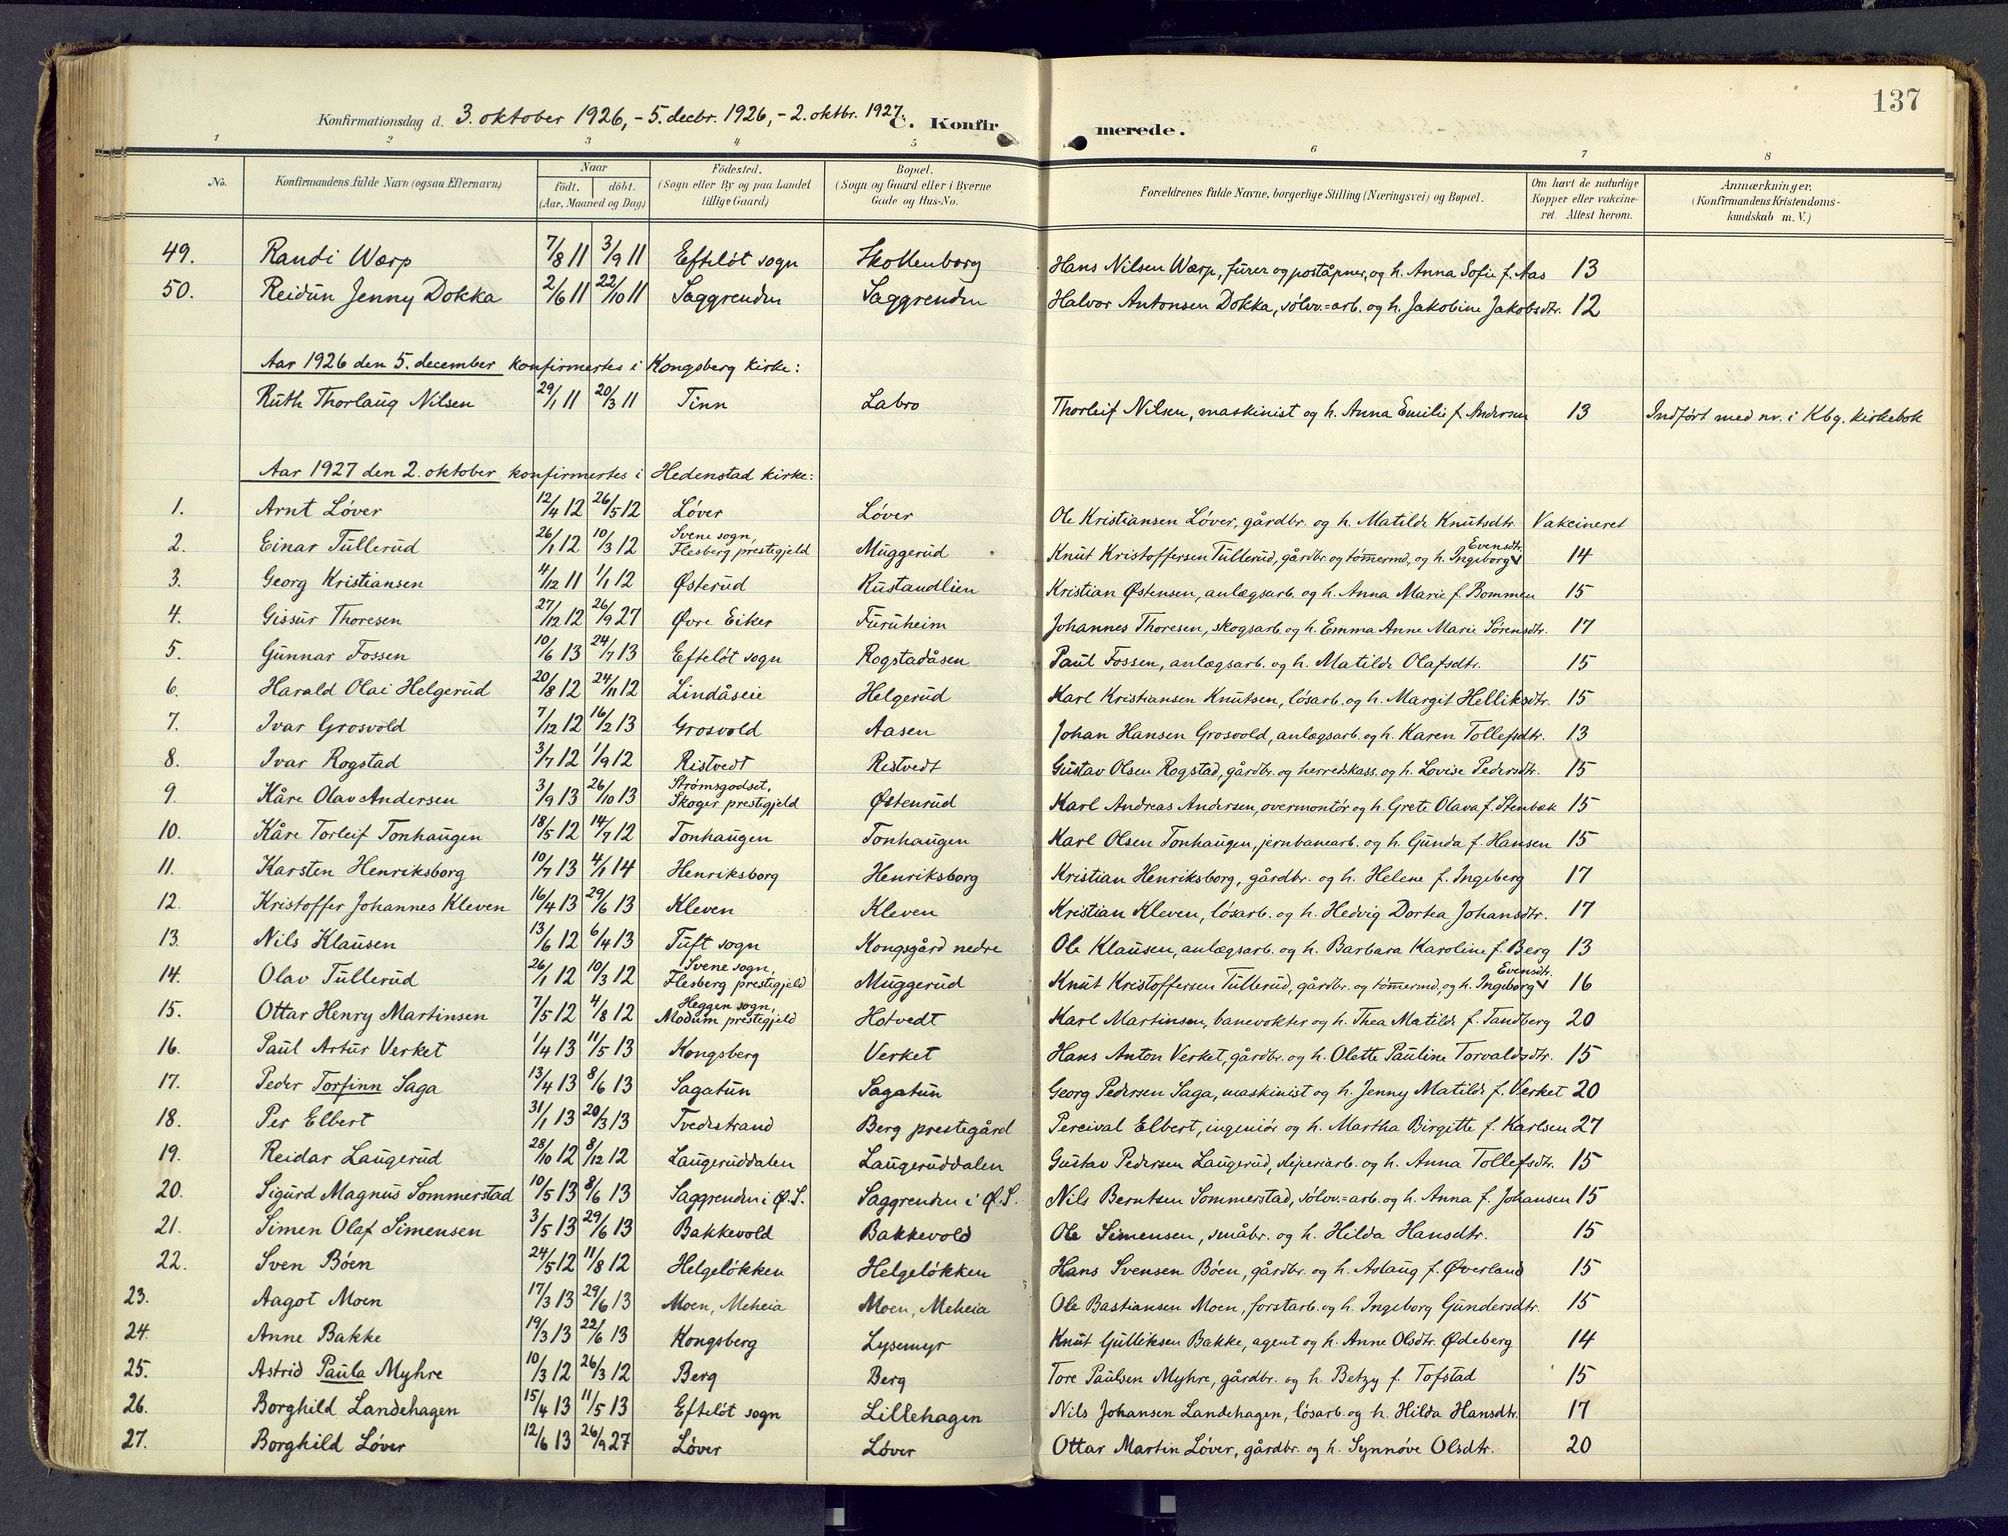 137
Konfirmationsdag d. 3. oktober 1926, - 5. decbr. 1926, - 2. oktbr. 1927. C. Konfirmerede.
1 2 3 4 5 6 7 8
No. Konfirmandens fulde Navn (ogsaa Efternavn) Naar født. døbt. (Aar, Maaned og Dag) Fødested. (Sogn eller By og paa Landet tillige Gaard) Bopæl. (Sogn og Gaard eller i Byerne Gade og Hus-No. Forældrenes fulde Navne, borgerlige Stilling (Næringsvei) og Bopæl. Om havt de naturlige Kopper eller vakcineret. Attest herom. Anmærkninger, (Konfirmandens Kristendomskundskab m. V.)
49. Randi Wærp 7/8 11 3/9 11 Efteløt sogn Skollenborg Hans Nilsen Wærp, furer og poståpner, og h. Anna Sofie f. Aas 13
50. Reidun Jenny Dokka 2/6 11 22/10 11 Saggrenden Saggrenden Halvor Antonsen Dokka, sølvv.=arb. og h. Jakobine Jakobsdtr. 12
Aar 1926 den 5. december konfirmertes i Kongsberg kirke:
Ruth Thorlaug Nilsen 29/1 11 20/3 11 Tinn Labro Thorleif Nilsen, maskinist og h. Anna Emilie f. Andersen 13 Indført med nr. i Kbg. kirkebok
Aar 1927 den 2. oktober konfirmertes i Hedenstad kirke:
1. Arnt Løver 12/4 12 26/5 12 Løver Løver Ole Kristiansen Løver, gårdbr. og h. Matilde Knutsdtr. Vakcineret
2. Einar Tullerud 26/1 12 10/3 12 Svene sogn, Flesberg prestigjeld Muggerud Knut Kristoffersen Tullerud, gårdbr. og tømermd, og h. Ingeborg Evensdtr. 14
3. Georg Kristiansen 4/12 11 1/1 12 Østerud Rustandlien Kristian Østensen, anlægsarb. og h. Anna Marie f. Bommen 15
4. Gissur Thoresen 27/12 12 26/9 27 Øvre Eiker Furuheim Johannes Thoresen, skogsarb. og h. Emma Anne Marie Sørensdtr. 17
5. Gunnar Fossen 10/6 13 24/7 13 Efteløt sogn Rogstadåsen Paul Fossen, anlægsarb. og h. Matilde Olafsdtr. 15
6. Harald Olai Helgerud 20/8 12 24/11 12 Lindåseie Helgerud Karl Kristiansen Knutsen, løsarb. og h. Margit Helliksdtr. 15
7. Ivar Grosvold 7/12 12 16/2 13 Grosvold Aasen Johan Hansen Grosvold, anlægsarb. og h. Karen Tollefsdtr. 13
8. Ivar Rogstad 3/7 12 1/9 12 Ristvedt Ristvedt Gustav Olsen Rogstad, gårdbr. og herredskass. og h. Lovise Pedersdtr. 15
9. Kåre Olav Andersen 3/9 13 26/10 13 Strømsgodset, Skoger prestigjeld Østenrud Karl Andreas Andersen, overmontør og h. Grete Olava f. Stenbæk 15
10. Kåre Torleif Tonhaugen 18/5 12 14/7 12 Tonhaugen Tonhaugen Karl Olsen Tonhaugen, jernbanearb. og h. Gunda f. Hansen 15
11. Karsten Henriksborg 10/7 13 4/1 14 Henriksborg Henriksborg Kristian Henriksborg, gårdbr. og h. Helene f. Ingeberg 17
12. Kristoffer Johannes Kleven 16/4 13 29/6 13 Kleven Kleven Kristian Kleven, løsarb. og h. Hedvig Dortea Johansdtr. 17
13. Nils Klausen 13/6 12 6/4 13 Tuft sogn Kongsgård nedre Ole Klausen, anlægsarb. og h. Barbara Karoline f. Berg 13
14. Olav Tullerud 26/1 12 10/3 12 Svene sogn, Flesberg prestigjeld Muggerud Knut Kristoffersen Tullerud, gårdbr. og tømermd, og h. Ingeborg Evensdtr. 16
15. Ottar Henry Martinsen 7/5 12 4/8 12 Heggen sogn, Modum prestigjeld Hotvedt Karl Martinsen, banevokter og h. Thea Matilde f. Tandberg 20
16. Paul Artur Verket 1/4 13 11/5 13 Kongsberg Verket Hans Anton Verket, gårdbr. og h. Olette Pauline Torvaldsdtr. 15
17. Peder Torfinn Saga 13/4 13 8/6 13 Sagatun Sagatun Georg Pedersen Saga, maskinist og h. Jenny Matilde f. Verket 20
18. Per Elbert 31/1 13 20/3 13 Tvedestrand Berg prestegård Percival Elbert, ingeniør og h. Martha Birgitte f. Karlsen 27
19. Reidar Laugerud 28/10 12 8/12 12 Laugeruddalen Laugeruddalen Gustav Pedersen Laugerud, sliperiarb. og h. Anna Tollefsdtr. 15
20. Sigurd Magnus Sommerstad 10/5 13 8/6 13 Saggrenden i Ø.S. Saggrenden i Ø.S. Nils Berntsen Sommerstad, sølvv.=arb. og h. Anna f. Johansen 15
21. Simen Olaf Simensen 3/5 13 29/6 13 Bakkevold Bakkevold Ole Simensen, småbr. og h. Hilda Hansdtr. 15
22. Sven Bøen 24/5 12 11/8 12 Helgeløkken Helgeløkken Hans Svensen Bøen, gårdbr. og h. Aslaug f. Øverland 15
23. Aagot Moen 17/3 13 29/6 13 Moen, Meheia Moen, Meheia Ole Bastiansen Moen, forstarb. og h. Ingeborg Gundersdtr. 15
24. Anne Bakke 19/3 13 22/6 13 Kongsberg Lysemyr Knut Gulliksen Bakke, agent og h. Anne Olsdtr. Ødeberg 14
25. Astrid Paula Myhre 10/3 12 26/3 12 Berg Berg Tore Paulsen Myhre, gårdbr. og h. Betzy f. Tofstad 15
26. Borghild Landehagen 15/4 13 11/5 13 Efteløt sogn Lillehagen Nils Johansen Landehagen, løsarb. og h. Hilda Hansdtr. 17
27. Borghild Løver 12/6 13 26/9 27 Løver Løver Ottar Martin Løver, gårdbr. og h. Synnøve Olsdtr. 20